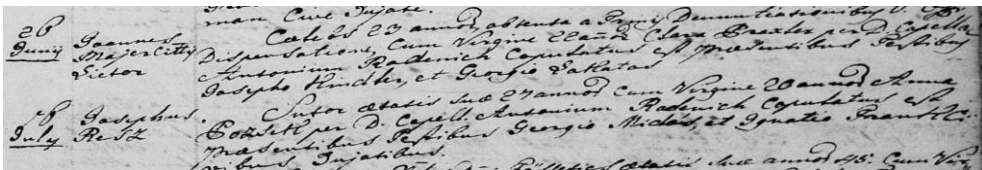 man Cive Injate.
26 Junij Joannes Majerczity Victor
Cælebs 23 annor, obtenta a Trinis Denuntiationibus V. Off.
Dispensatione, Cum Virgine 22 annor Clara Praxler per D. Capellan
Antonium Radenich Copulatus est præsentibus Testibus
Josepho Kindler, et Georgio Lakatos
July Josephus Resz
Sutor ætatis suæ 27 annor Cum Virgine 20 annor Anna
per D. Capell. Antonium Radenich Copulatus est
præsentibus Testibus Georgio et Ignatio
Injatibus.
ætatis suæ annor 45. Cum